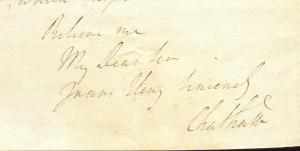 , which
Believe me
My Dear Sir
Yours Very Sincerely
Chatham